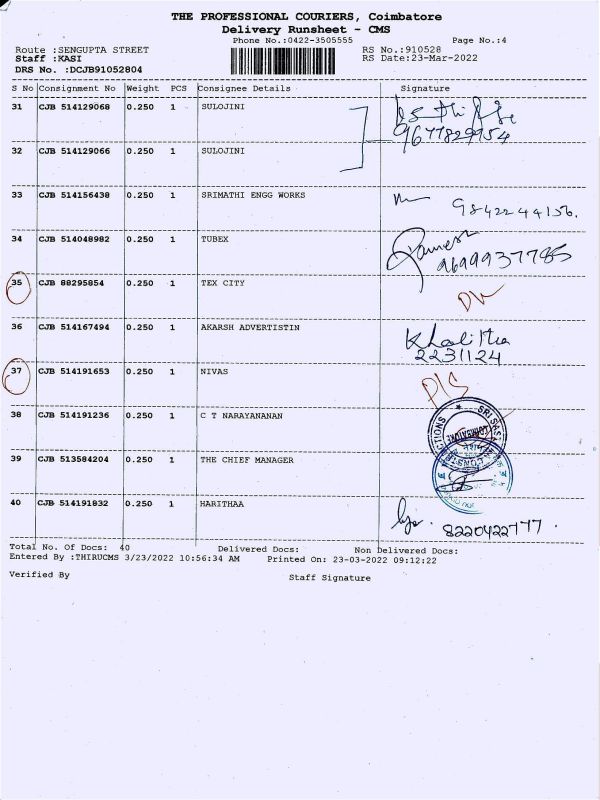 THE PROFESSIONAL COURIERS, Coimbatore
Delivery Runsheet - CMS
Phone No.:0422-3505555 Page No.:4
Route :SENGUPTA STREET RS No.:910528
Staff :KASI RS Date:23-Mar-2022
DRS No. :DCJB91052804
S No Consignment No Weight PCS Consignee Details Signature
31 CJB 514129068 0.250 1 SULOJINI
9677829954
32 CJB 514129066 0.250 1 SULOJINI
33 CJB 514156438 0.250 1 SRIMATHI ENGG WORKS
9842244156.
34 CJB 514048982 0.250 1 TUBEX Ramesh
9699937785
35 CJB 88295854 0.250 1 TEX CITY
36 CJB 514167494 0.250 1 AKARSH ADVERTISTIN Khalitha
2231124
37 CJB 514191653 0.250 1 NIVAS
38 CJB 514191236 0.250 1 C T NARAYANANAN
39 CJB 513584204 0.250 1 THE CHIEF MANAGER
40 CJB 514191832 0.250 1 HARITHAA
8220422777.
Total No. Of Docs: 40 Delivered Docs: Non Delivered Docs:
Entered By :THIRUCMS 3/23/2022 10:56:34 AM Printed On: 23-03-2022 09:12:22
Verified By Staff Signature